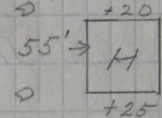 +20
55' → H
+25